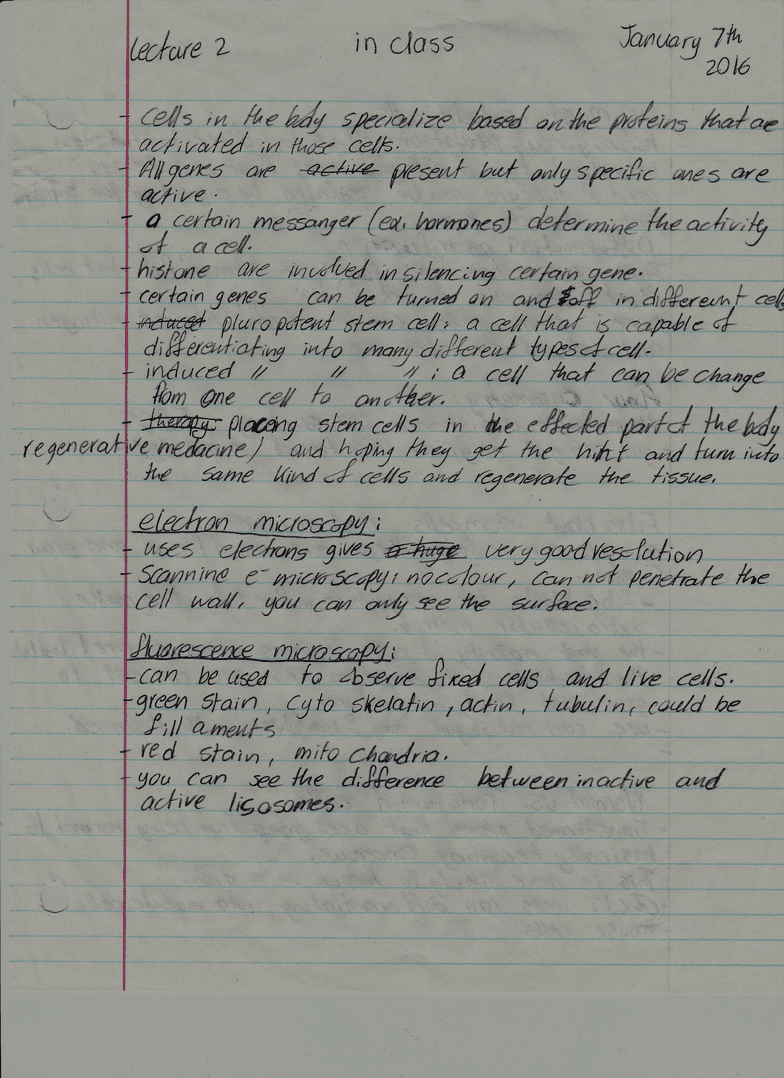 Lecture 2 in class January 7th
2016
- cells in the body specialize based on the proteins that are
activated in those cells.
- All genes are active present but only specific ones are
active.
- a certain messanger (ex. hormones) determine the activity
of a cell.
- histone are involved in silencing certain gene.
- certain genes can be turned on and off in differeunt cells
- induced pluropotent stem cell: a cell that is capable of
differentiating into many different types of cell.
- induced " " " : a cell that can be change
from one cell to another.
- therapy placing stem cells in the effected part of the body
regenerative medacine) and hoping they get the hint and turn into
the same kind of cells and regenerate the tissue.
electron microscopy:
- uses electrons gives a huge very good resolution
- Scannine e- microscopy: no colour, can not penetrate the
cell wall, you can only see the surface.
fluorescence microscopy:
- can be used to observe fixed cells and live cells.
- green stain, cyto skelatin, actin, tubulin, could be
fill aments
- red stain, mito chondria.
- you can see the difference between inactive and
active lisosomes.